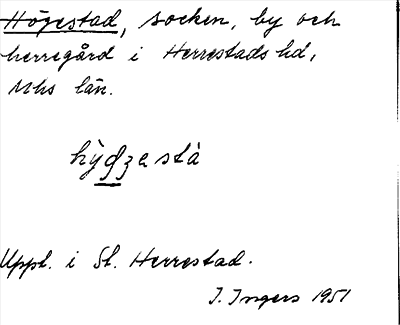 Högestad, socken, by och
herregård i Herrestads hd,
Mhs län.
Uppt. i St. Herrestad.
I. Ingers 1951